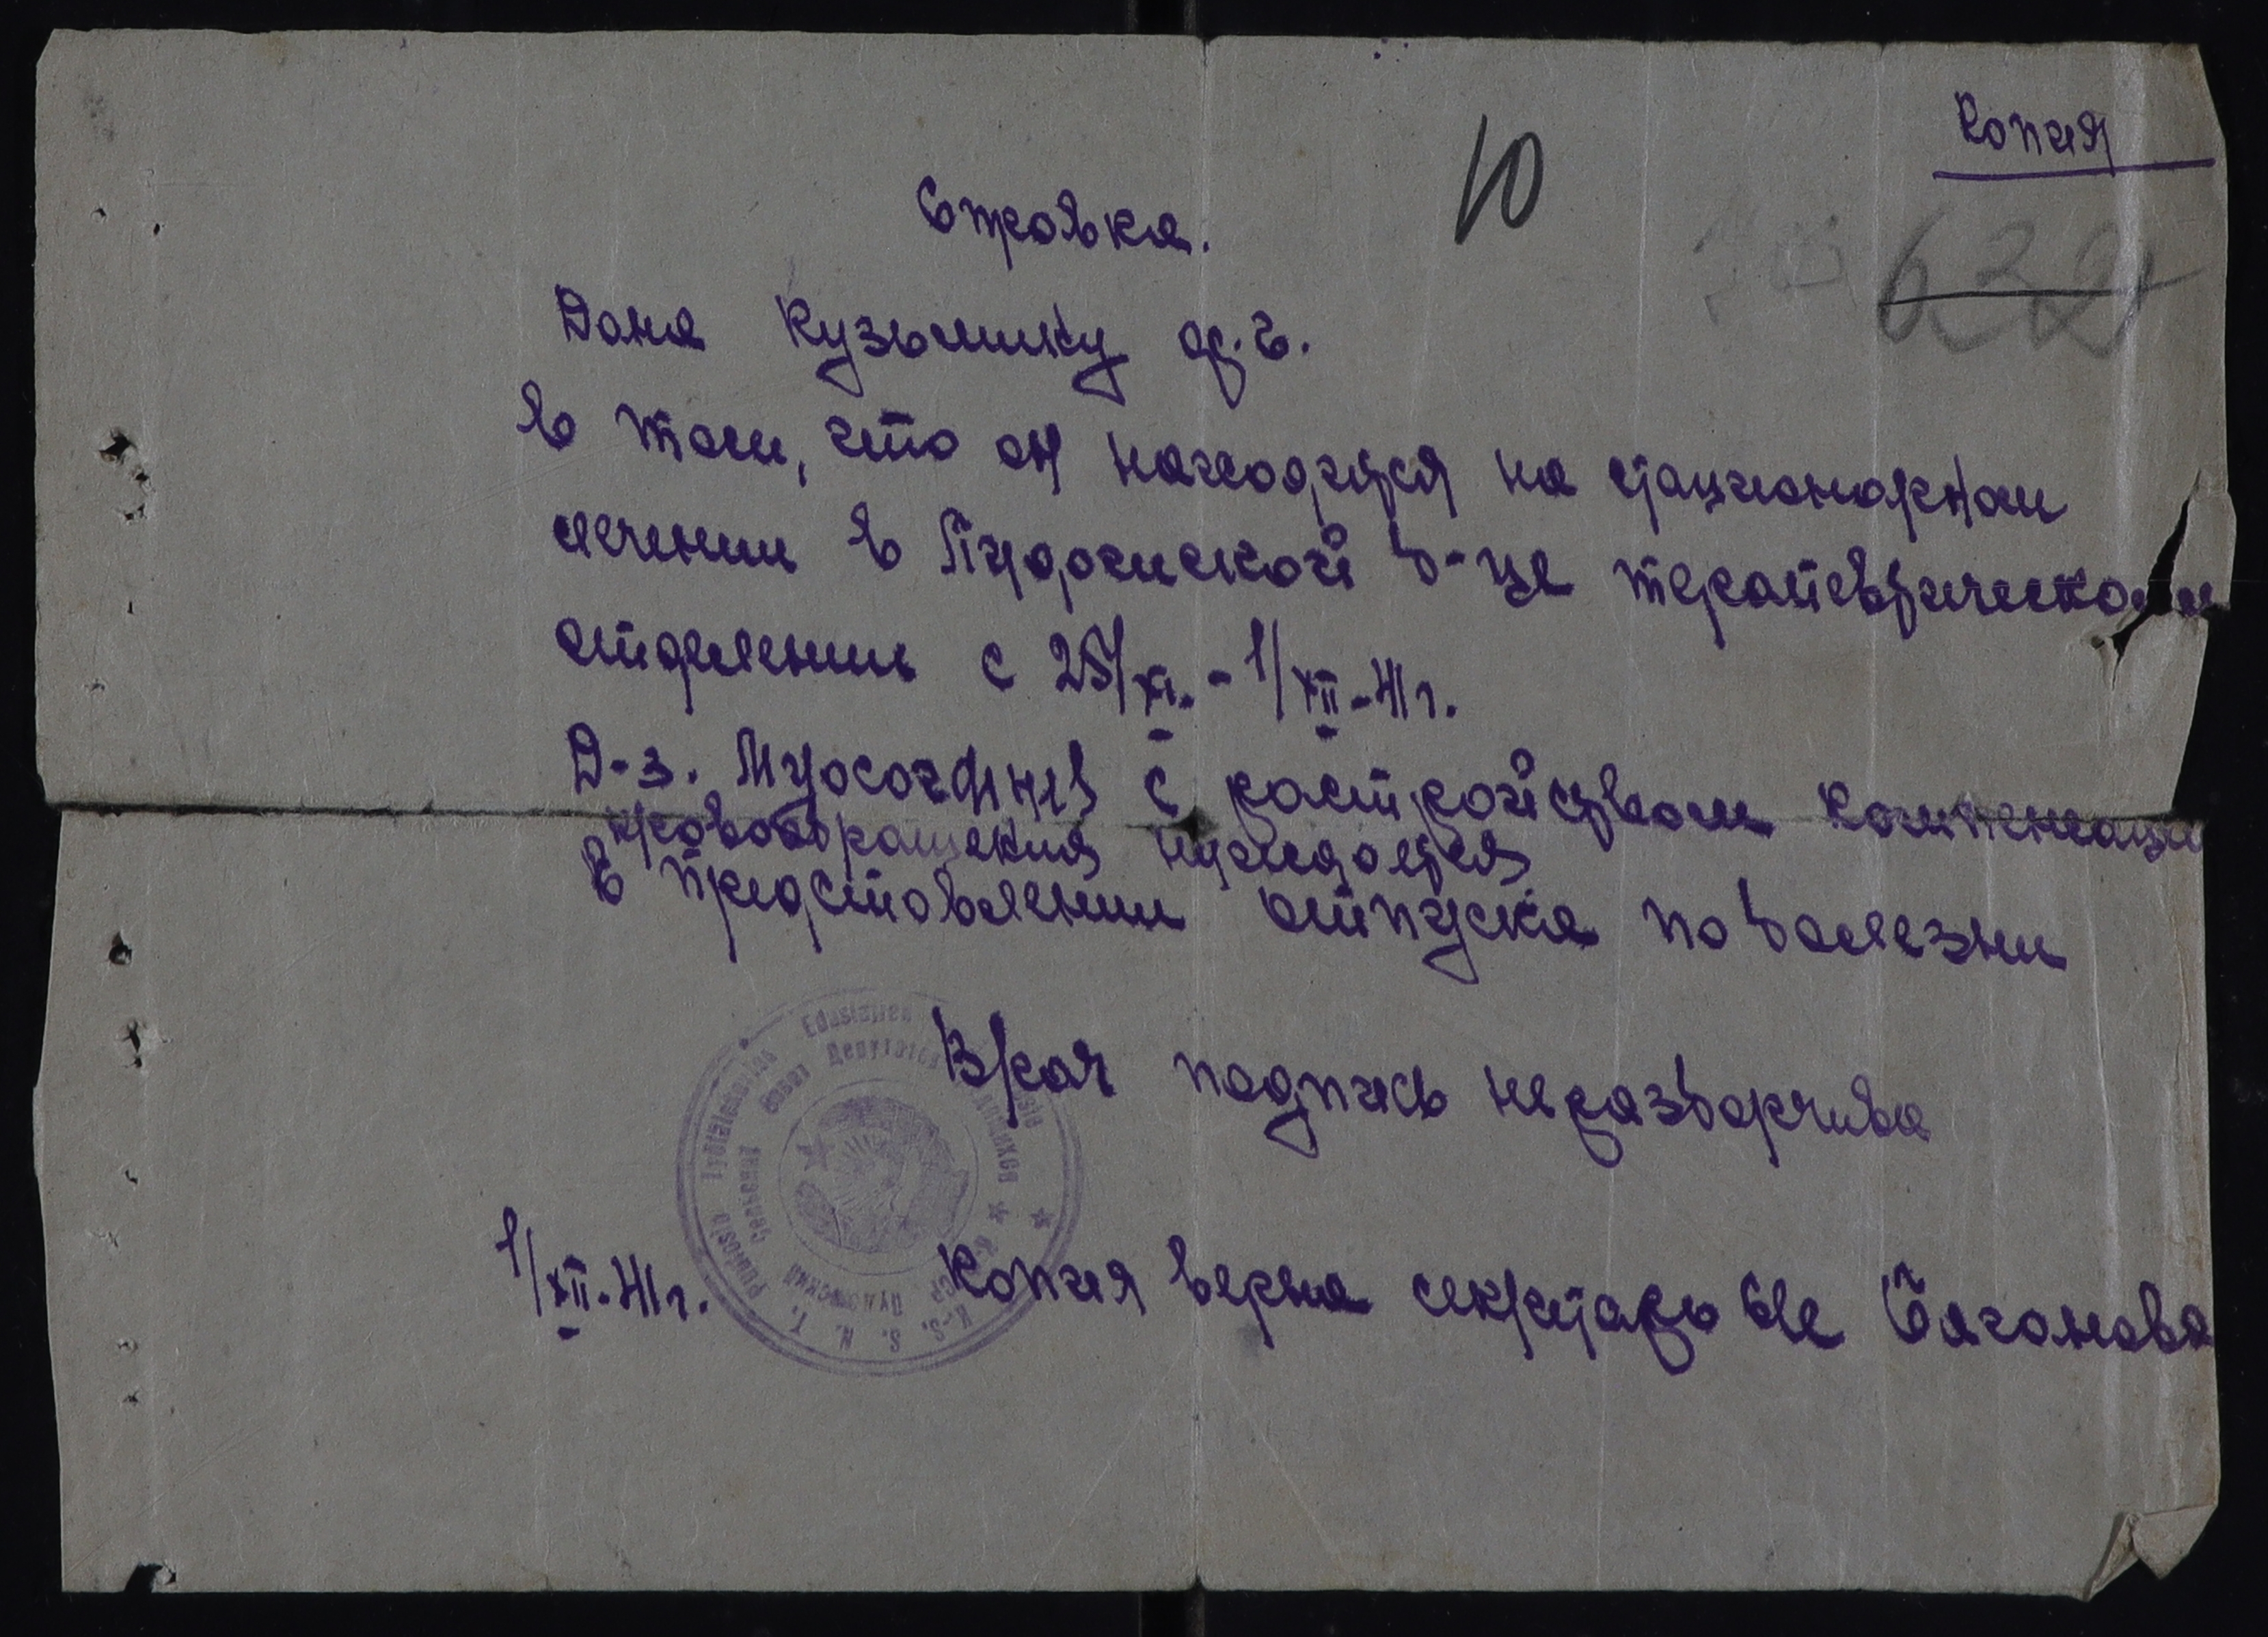 Копия
10
622
Справка.
Дана Кузьмину ф. г.
в том, что он находится на стационарном
лечении в Пудожской б-це терапевтическом
отделении с 25/XI. - 1/XII - 41 г.
Д-з. с расстройством компенсаци
кровообращения нуждается
в предоставлении отпуска по болезни
Врач подпись неразборчива
1/XII - 41 г. Копия верна секретарь
Совет Депутатов
K.-S. S. N. T.